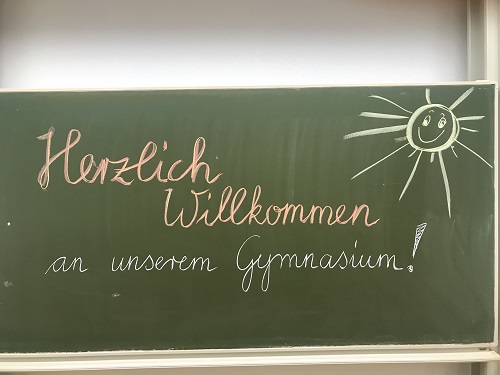 Herzlich
Willkommen
an unserem Gymnasium!